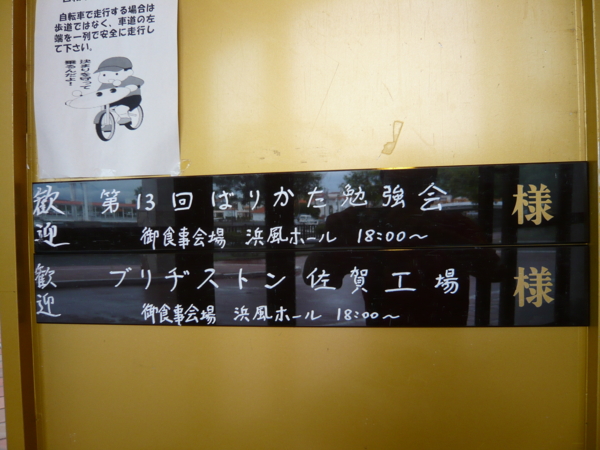 自転車で走行する場合は
歩道ではなく、車道の左
端を一列で安全に走行し
て下さい。
決まりを守って
乗るんだよ!
歓迎 第13回ばりかた勉強会 様
御食事会場 浜風ホール 18:00～
歓迎 ブリヂストン佐賀工場 様
御食事会場 浜風ホール 18:00～